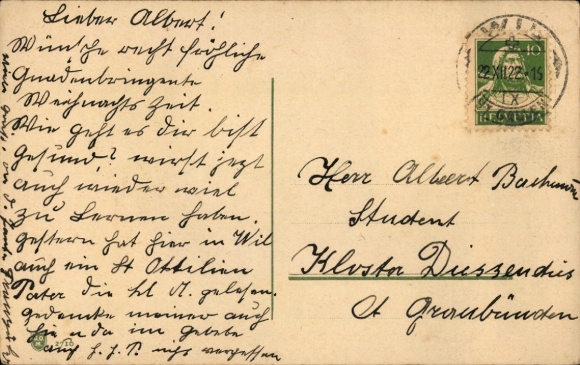 Lieber Albert!
Wünsche recht fröhliche
Gnadenbringente
Weihnachts Zeit.
Wie geht es dir bist
Gesund? wirst jezt
auch wieder viel
zu Lernen haben.
gestern hat hier in Wil
auch ein St Ottilien
Pater die hl M. gelesen.
gedenke meiner auch
hie u da im gebete
auf
vergessen
WIL
10
22.XII.22.-15
IX
HELVETIA
Herr Albert
Student
Kloster
Ct Graubünden